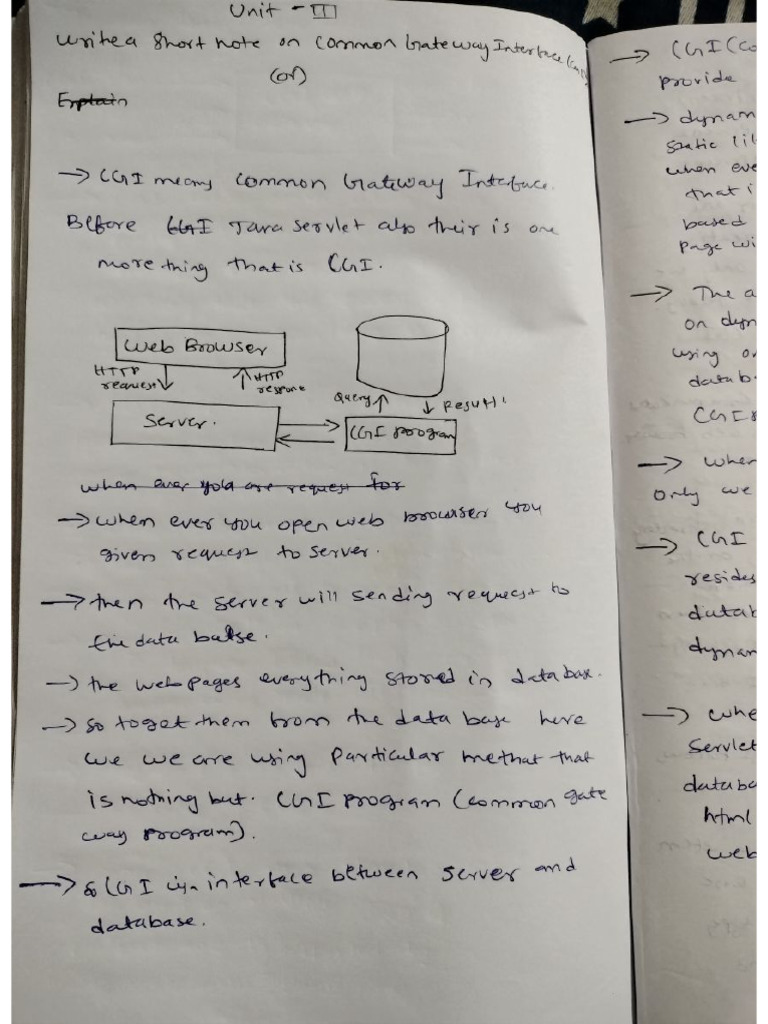 Unit - III
Write a Short note on Common Gateway Interface (CGI)
(or)
Explain
→ CGI means Common Gateway Interface.
Before CGI Java Servlet also their is one
more thing that is CGI.
Web Browser
HTTP request
HTTP response
Query
Result
Server.
CGI program
when ever you are request for
→ when ever you open web browser you
given request to server.
→ then the server will sending request to
the data base.
→ the webpages everything stored in database.
→ so to get them from the data base here
we we are using particular methat that
is nothing but. CGI program (common gate
way program).
→ so CGI is interface between server and
database.
→ CGI (Co
provide
→ dynam
static
when eve
that i
based
page wi
→ The a
on dyn
using
datab
CGI
→ when
only we
→ CGI
resides
datab
dynam
→ whe
Servlet
databa
html
web